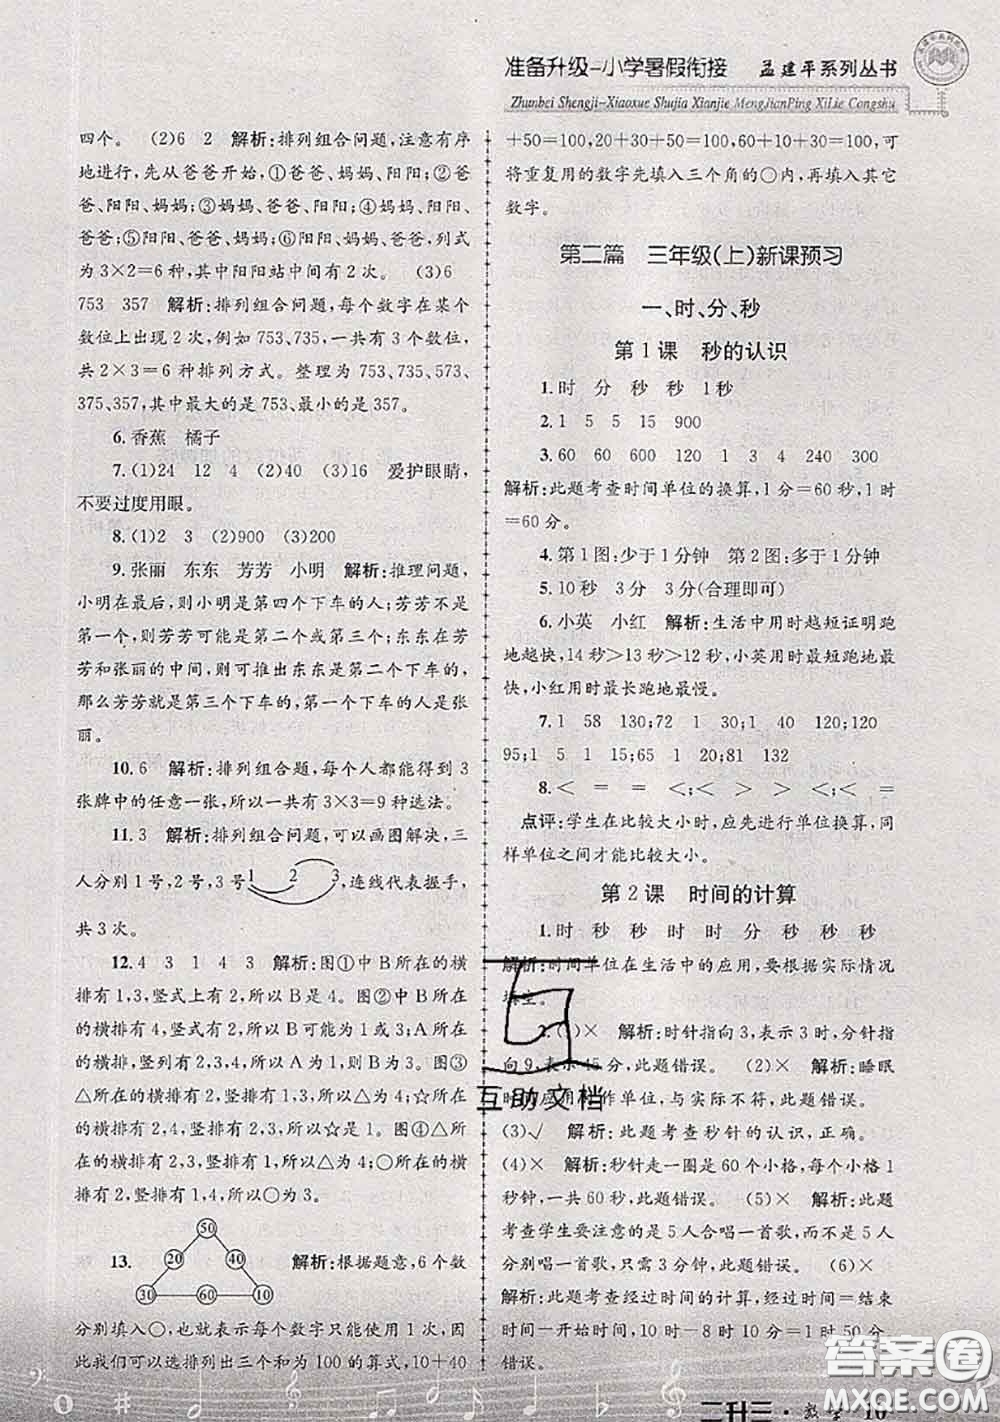 准备升级-小学暑假衔接 孟建平系列丛书
Zhunbei Shengji-Xiaoxue Shujia Xianjie MengJianPing XiLie Congshu
四个。 (2)6 2 解析:排列组合问题,注意有序
地进行,先从爸爸开始,①爸爸、妈妈、阳阳;②爸
爸、阳阳、妈妈;③妈妈、爸爸、阳阳;④妈妈、阳阳、
爸爸;⑤阳阳、爸爸、妈妈;⑥阳阳、妈妈、爸爸,列式
为3×2=6种,其中阳阳站中间有2次。 (3)6
753 357 解析:排列组合问题,每个数字在某个
数位上出现2次,例如753,735,一共有3个数位,
共2×3=6种排列方式。整理为753,735,573,
375,357,其中最大的是753、最小的是357。
6.香蕉 橘子
7.(1)24 12 4 (2)40 (3)16 爱护眼睛,
不要过度用眼。
8.(1)2 3 (2)900 (3)200
9.张丽 东东 芳芳 小明 解析:推理问题,
小明在最后,则小明是第四个下车的人;芳芳不是
第一个,则芳芳可能是第二个或第三个;东东在芳
芳和张丽的中间,则可推出东东是第二个下车的,
那么芳芳就是第三个下车的,第一个下车的人是张
丽。
10.6 解析:排列组合题,每个人都能得到3
张牌中的任意一张,所以一共有3×3=9种选法。
11.3 解析:排列组合问题,可以画图解决,三
人分别1号,2号,3号 1 2 3,连线代表握手,
共3次。
12.4 3 1 4 3 解析:图①中B所在的横
排有1,3,竖式上有2,所以B是4。图②中B所在
的横排有4,竖式有2,所以B可能为1或3;A所在
的横排有3,竖列有2,4,所以A为1,则B为3。图③
△所在的横排有2,竖排有1,3,所以△为4;☆所
在的横排有2,4,竖排有1,所以☆是3。图④△所在
的横排有2,竖排有1,4,所以△为3;○所在的横排
有2,竖排有1,4,所以○为3。
13. 50 20 40 30 60 10 解析:根据题意,6个数
分别填入○,也就表示每个数字只能使用1次,因
此我们可以选排列出三个和为100的算式,10+40
+50=100,20+30+50=100,60+10+30=100,可
将重复用的数字先填入三个角的○内,再填入其它
数字。
第二篇 三年级(上)新课预习
一、时、分、秒
第1课 秒的认识
1.时 分 秒 秒 1秒
2.1 5 5 15 900
3.60 60 600 120 1 3 4 240 300
解析:此题考查时间单位的换算,1分=60秒,1时
=60分。
4.第1图:少于1分钟 第2图:多于1分钟
5.10秒 3分 3分(合理即可)
6.小英 小红 解析:生活中用时越短证明跑
地越快,14秒>13秒>12秒,小英用时最短跑地最
快,小红用时最长跑地最慢。
7.1 58 130;72 1 03;1 40 120;120
95;1 5 1 15 65 1 20;81 132
8.< = = <;< > > <;< = <
点评:学生在比较大小时,应先进行单位换算,同
样单位之间才能比较大小。
第2课 时间的计算
1.时 秒 秒 时 时 分 秒 秒 秒
解析:时间单位在生活中的应用,要根据实际情况
填上。
2.(1)× 解析:时针指向3,表示3时,分针指
向9,表示45分,此题错误。 (2)× 解析:睡眠
时间应用时作单位,与实际不符,此题错误。
(3)√ 解析:此题考查秒针的认识,正确。
(4)× 解析:秒针走一圈是60个小格,每个小格1
秒钟,一共60秒,此题错误。 (5)× 解析:此题
考查学生要注意的是5人合唱一首歌,而不是每人
唱一首歌,所以还是5分钟,此题错误。 (6)×
解析:此题考查经过时间的计算,经过时间=结束
时间-开始时间,10时-8时10分=1时50分,
此题错误。
互助文档
答案圈
MXQE.COM
二升三·数学